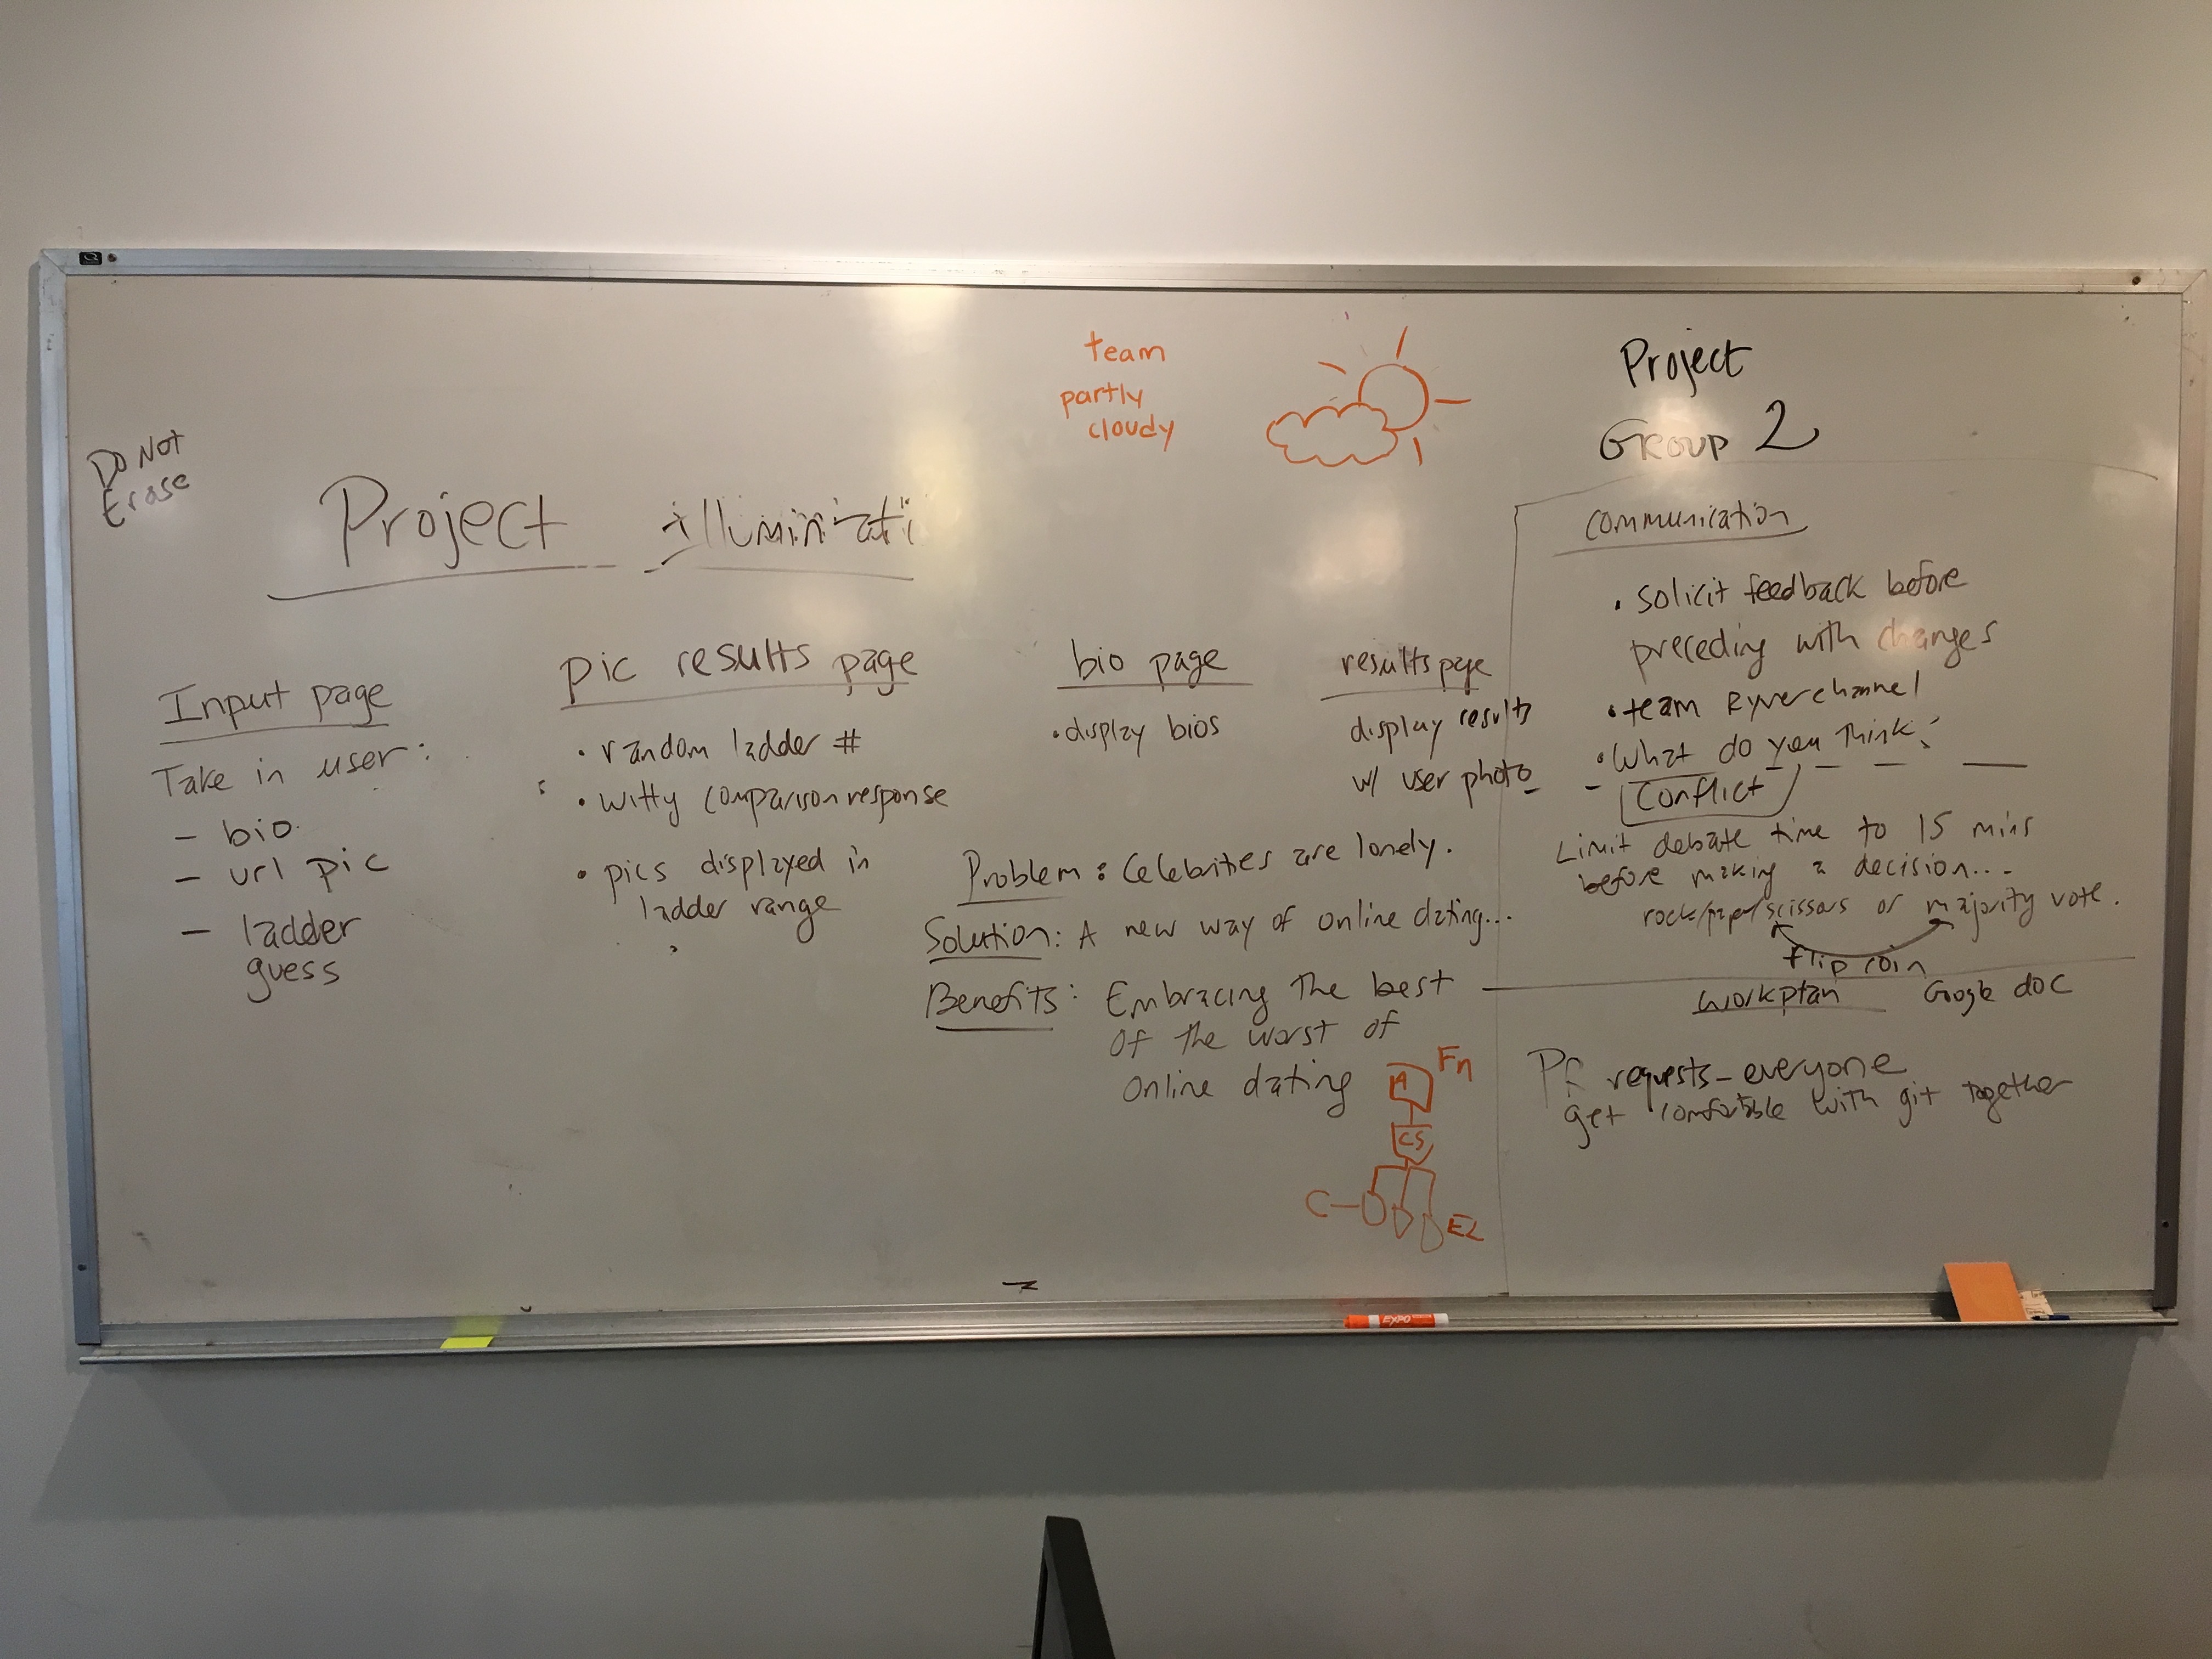 Do Not
Erase
Project illuminati
team
partly
cloudy
Project
Group 2
Input page
Take in user:
- bio
- url pic
- ladder
guess
pic results page
• random ladder #
• witty comparison response
• pics displayed in
ladder range
bio page
• display bios
results page
display results
w/ user photo
Problem: Celebrities are lonely.
Solution: A new way of online dating...
Benefits: Embracing the best
of the worst of
online dating
Fn
A
CS
C
E2
communication
• solicit feedback before
preceding with changes
• team Ryver channel
• What do you think?
Conflict
Limit debate time to 15 mins
before making a decision...
rock/paper/scissors or majority vote.
flip coin
workplan Google doc
PR requests - everyone
get comfortable with git together
EXPO